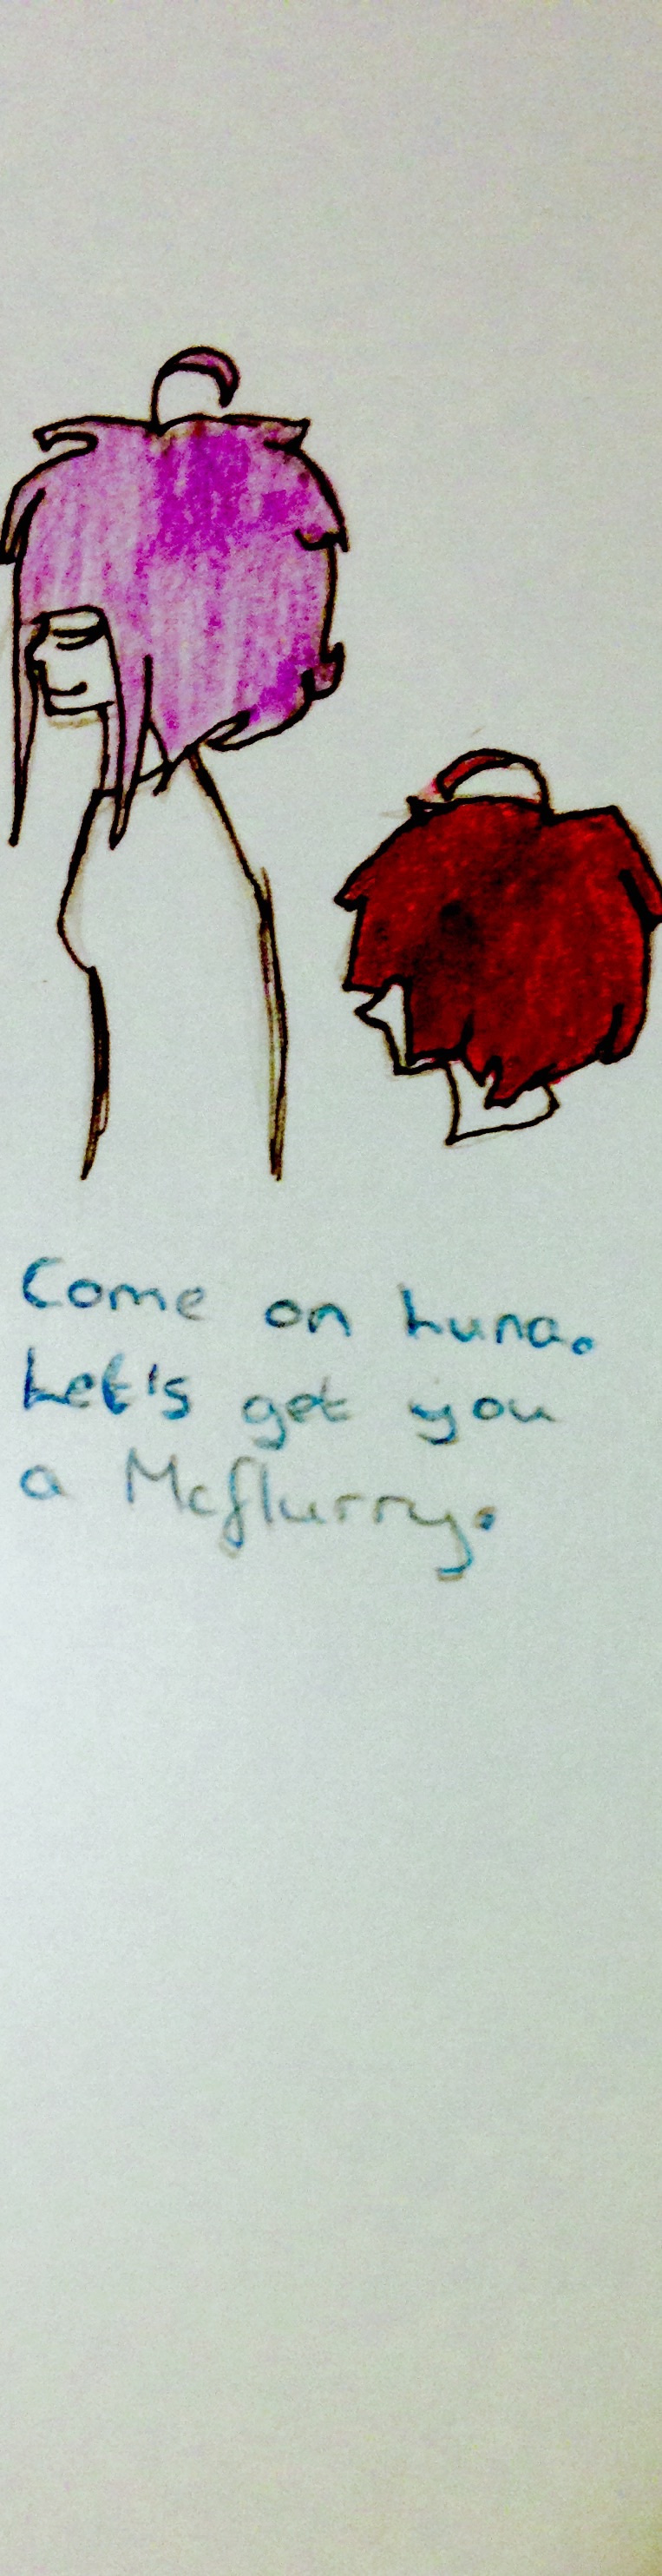 Come on Luna.
Let's get you
a Mcflurry.